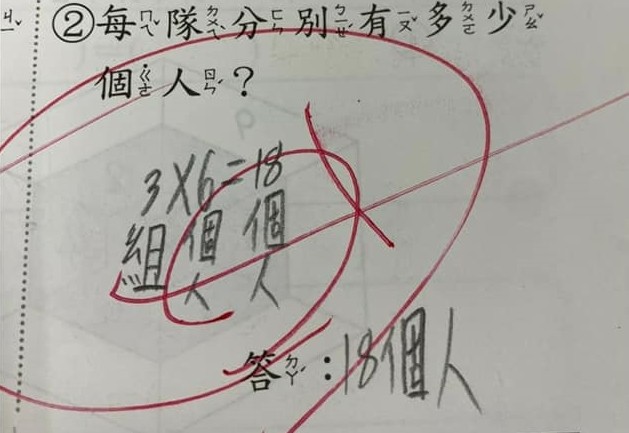 ②每ㄇㄟˇ隊ㄉㄨㄟˋ分ㄈㄣ別ㄅㄧㄝˊ有ㄧㄡˇ多ㄉㄨㄛ少ㄕㄠˇ
個ㄍㄜ˙人ㄖㄣˊ？
3×6=18
組 個 個
人 人
答ㄉㄚˊ：18個人